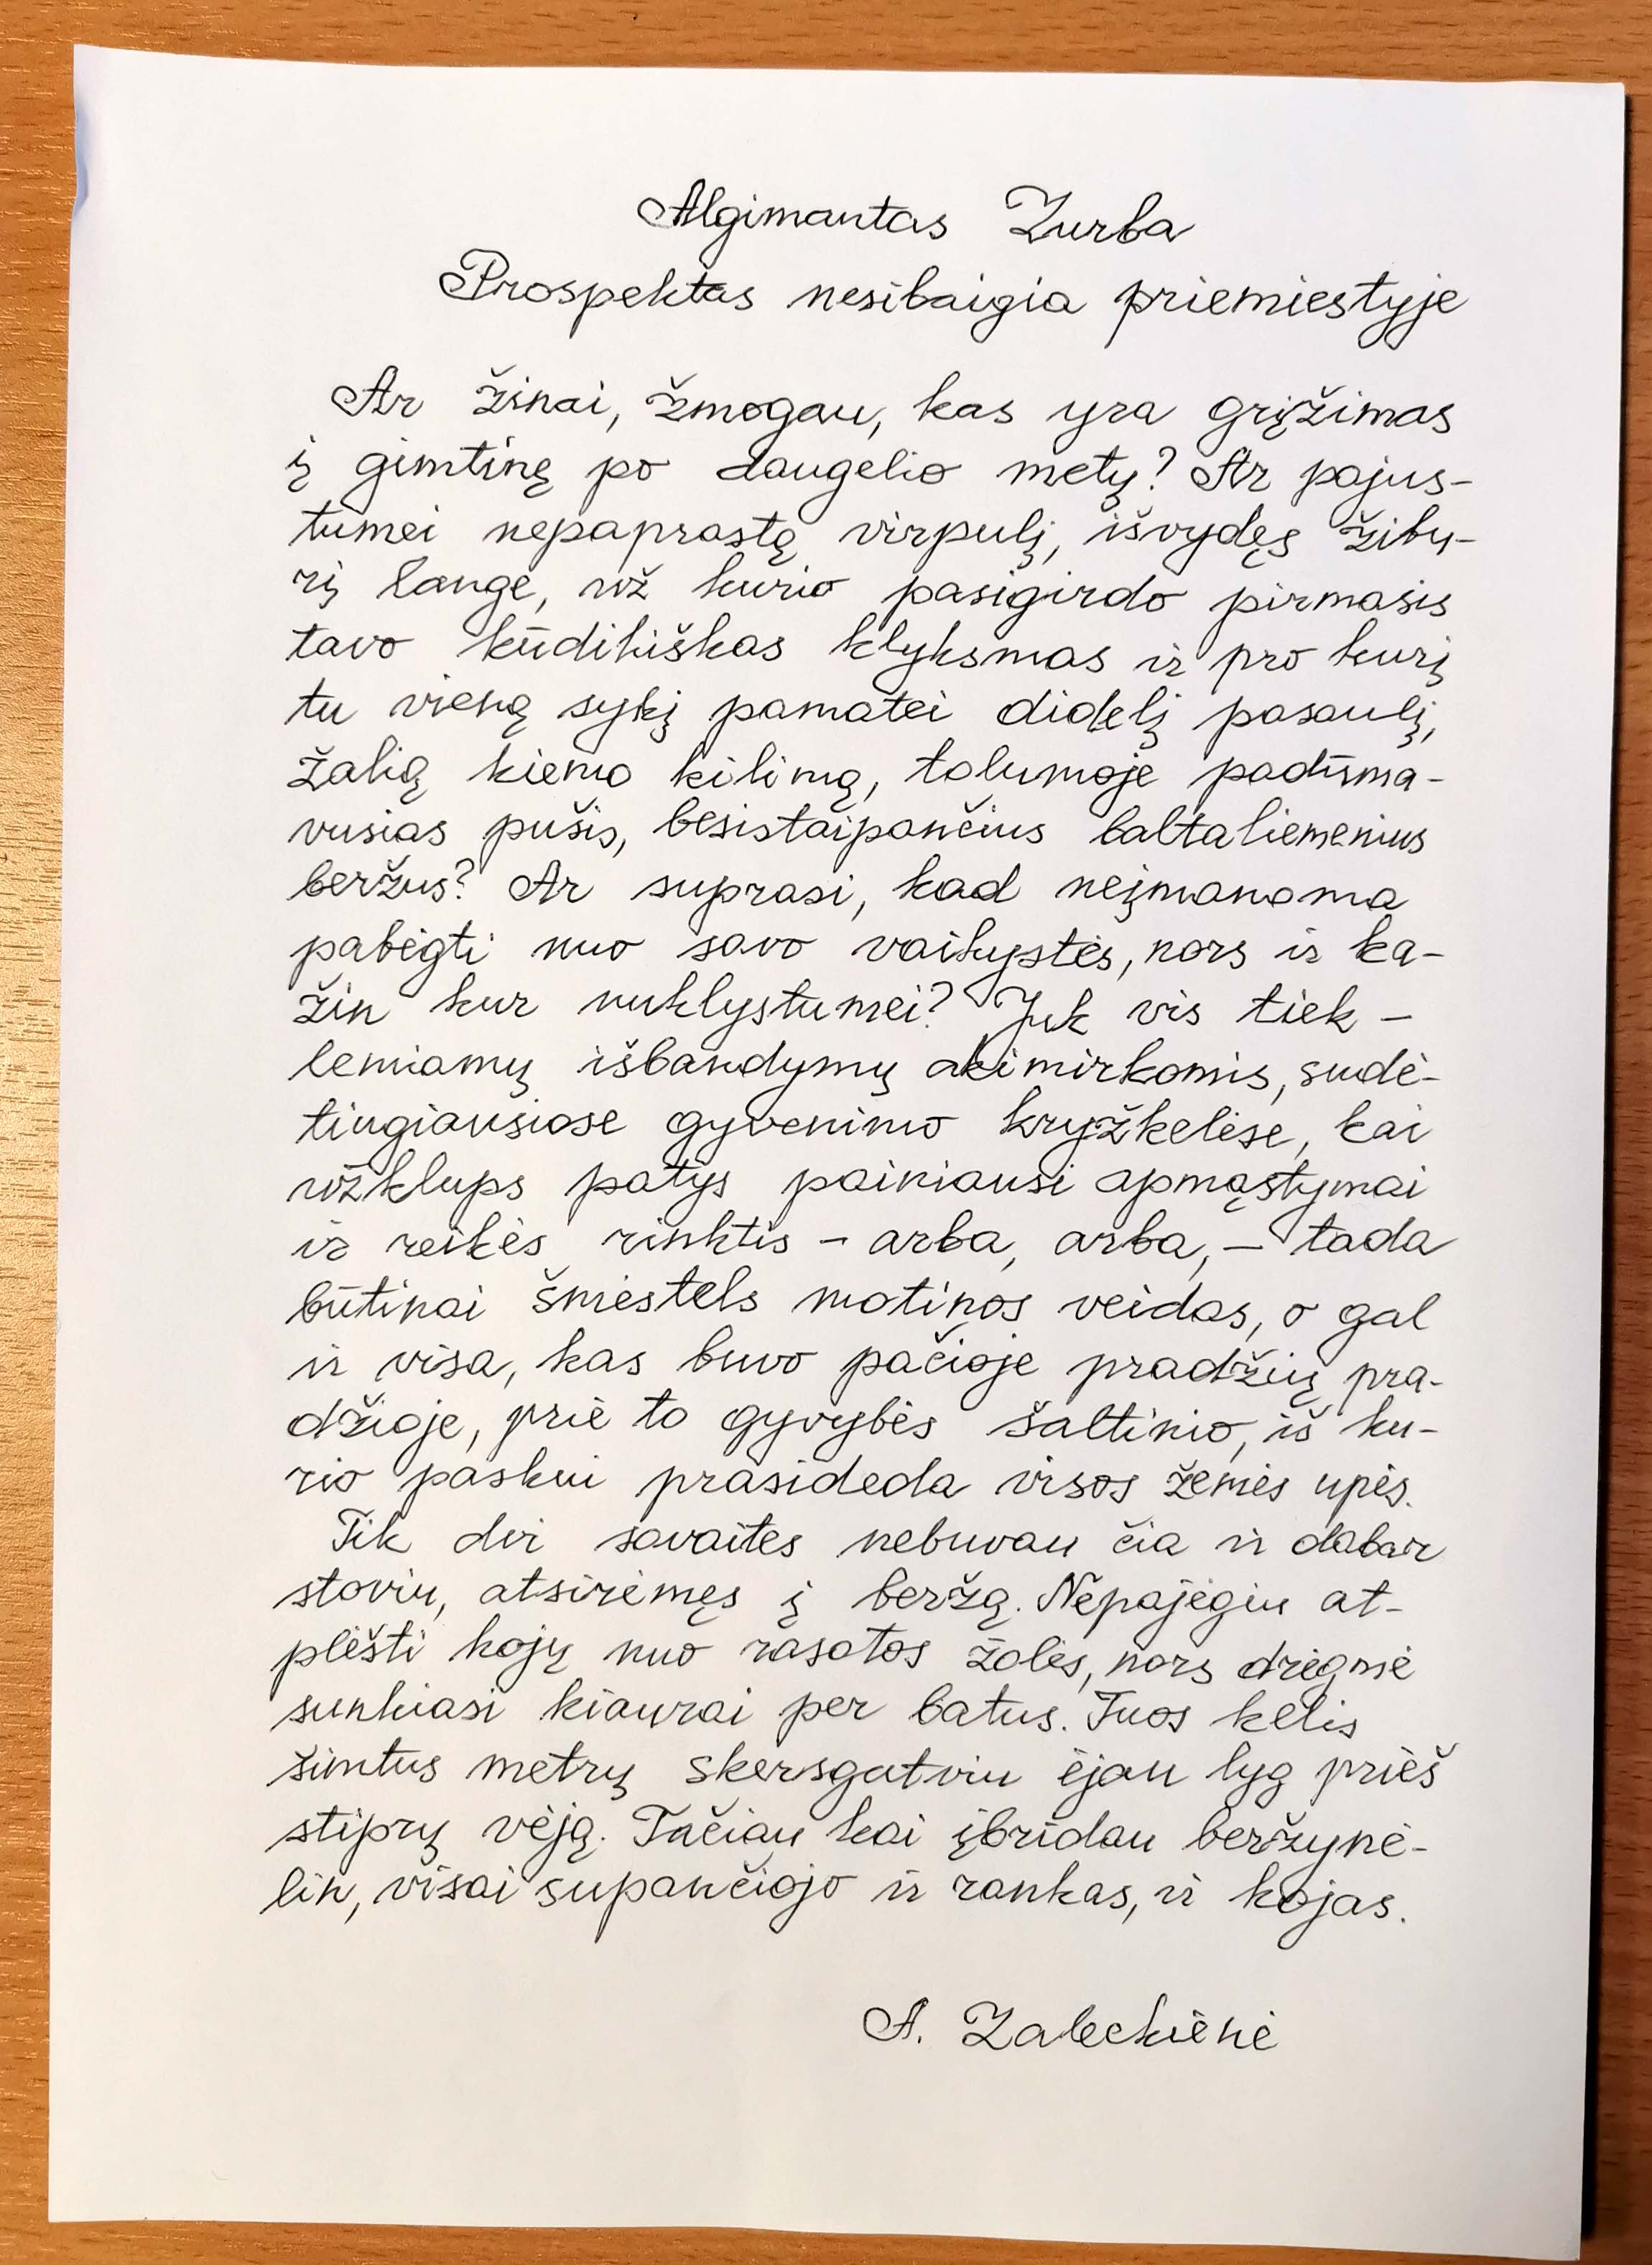 Algimantas Zurba
Prospektas nesibaigia priemiestyje
Ar žinai, žmogau, kas yra grįžimas
į gimtinę po daugelio metų? Ar pajus-
tumei nepaprastą virpulį, išvydęs žibu-
rį lange, už kurio pasigirdo pirmasis
tavo kūdikiškas klyksmas ir pro kurį
tu vieną sykį pamatei didelį pasaulį,
žalią kiemo kilimą, tolumoje padūma-
vusias pušis, besistaipančius baltaliemenius
beržus? Ar suprasi, kad neįmanoma
pabėgti nuo savo vaikystės, nors ir ka-
žin kur nuklystumei? Juk vis tiek –
lemiamų išbandymų akimirkomis, sudė-
tingiausiose gyvenimo kryžkelėse, kai
užklups patys painiausi apmąstymai
ir reikės rinktis – arba, arba, – tada
būtinai šmėstels motinos veidas, o gal
ir visa, kas buvo pačioje pradžių pra-
džioje, prie to gyvybės šaltinio, iš ku-
rio paskui prasideda visos žemės upės.
Tik dvi savaites nebuvau čia ir dabar
stoviu, atsirėmęs į beržą. Nepajėgiu at-
plėšti kojų nuo rasotos žolės, nors drėgmė
sunkiasi kiaurai per batus. Tuos kelis
šimtus metrų skersgatviu ėjau lyg prieš
stiprų vėją. Tačiau kai įbridau beržynė-
lin, visai supančiojo ir rankas, ir kojas.
A. Zaleckienė